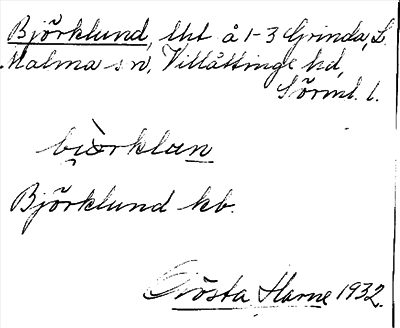 Björklund, lht å 1-3 Grinda, L.
Malma sn, Villåttinge hd,
Sörml. l.
bi̯ò̱rklan
Björklund kb.
Gösta Harne 1932.